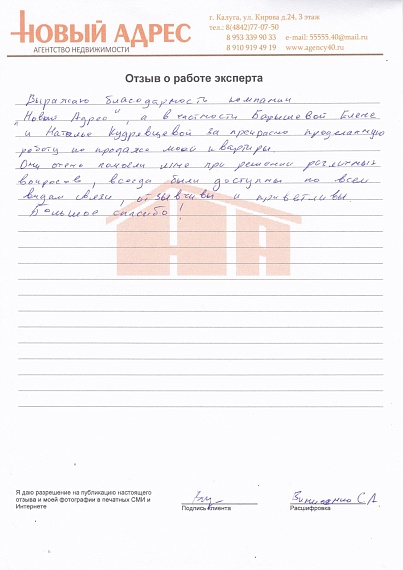 НОВЫЙ АДРЕС
АГЕНТСТВО НЕДВИЖИМОСТИ
г. Калуга, ул. Кирова д.24, 3 этаж
тел.: 8(4842)77-07-50
8 953 339 90 33 e-mail: 55555.40@mail.ru
8 910 919 49 19 www.agency40.ru
Отзыв о работе эксперта
Выражаю благодарность компании
"Новый Адрес", а в частности Барышевой Елене
и Наталье Кудрявцевой за прекрасно проделанную
работу по продаже моей квартиры.
Они очень помогли мне при решении различных
вопросов, всегда были доступны по всем
видам связи, отзывчивы и приветливы.
Большое спасибо!
Я даю разрешение на публикацию настоящего
отзыва и моей фотографии в печатных СМИ и
Интернете
Подпись клиента
Расшифровка